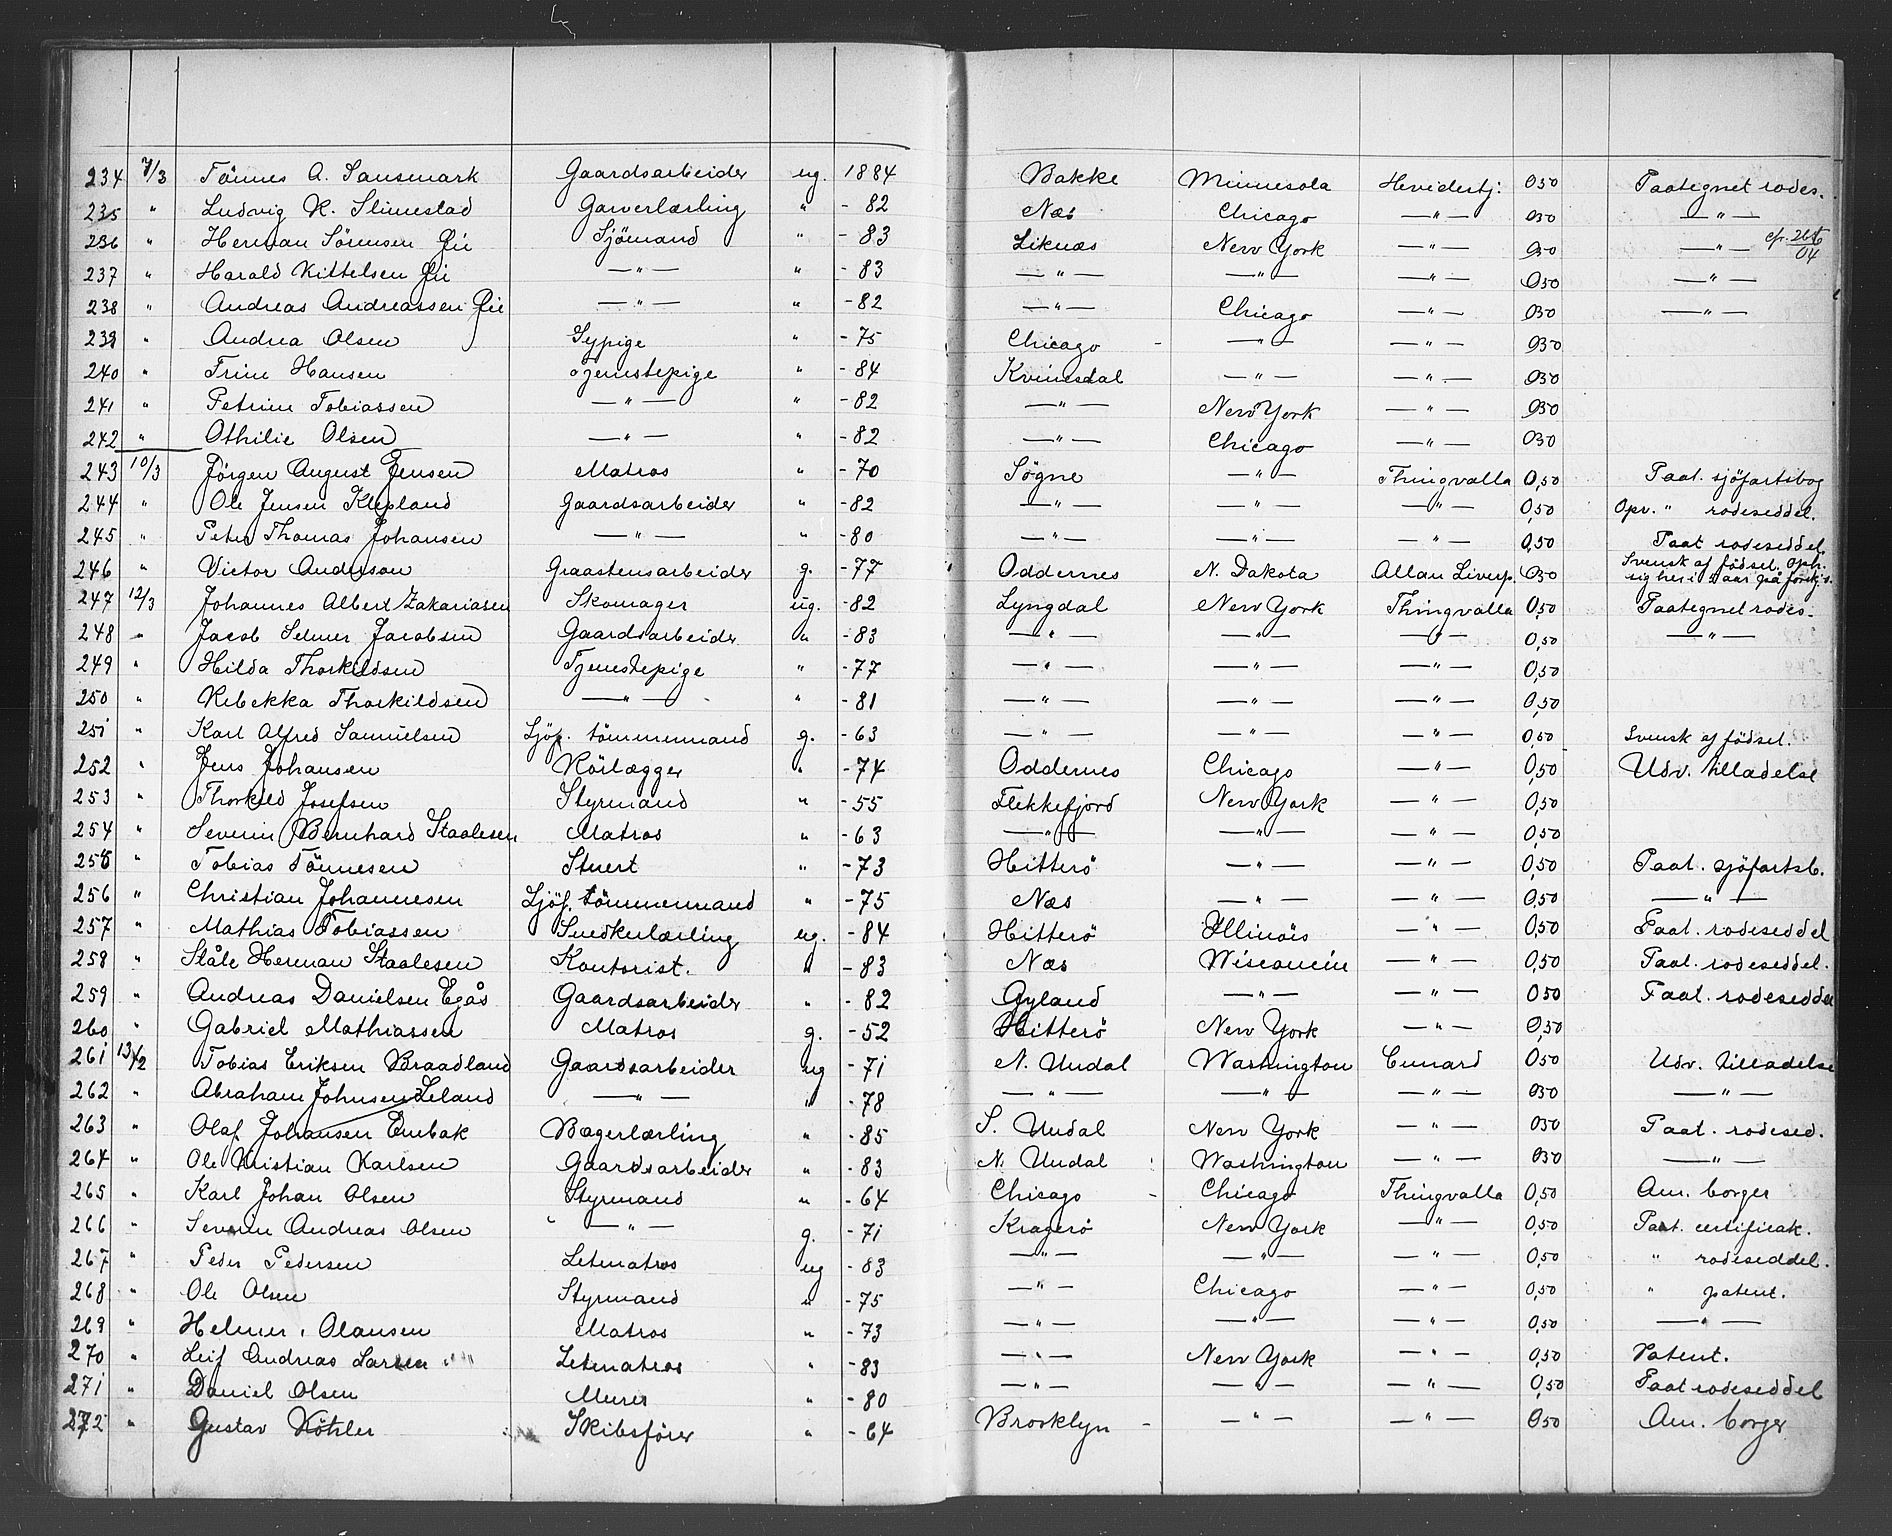 234 7/3 Tönnes A. Sansemark Gaardsarbeider ug. 1884 Bakke Minnesola Hvidestj. 050 Paategnet rodes.
235 " Ludvig K. Slimestad Garverlærling " - 82 Næs Chicago —"— 050 —"—
236 " Herman Sörensen Sjömand " - 83 Liknæs New York —"— 050 —"—
237 " Harald Kittelsen —"— " - 83 —"— —"— —"— 050 —"—
238 " Andreas Andreassen —"— " - 82 —"— Chicago —"— 050 —"—
239 " Andrea Olsen Sypige " - 75 Chicago - —"— —"— 050
240 " Trine Hansen Tjenstepige " - 84 Kvinesdal —"— —"— 050
241 " Petrine Tobiassen —"— " - 82 —"— New York —"— 050
242 " Othilie Olsen —"— " - 82 —"— Chicago —"— 050
243 10/3 Jörgen August Jensen Matros " - 70 Sögne —"— Thingvalla 0,50 Paat. sjöfartsbog
244 " Ole Jensen Klepland Gaardsarbeider " - 82 —"— —"— —"— 0,50 Opv. " rodeseddel.
245 " Peter Thomas Johansen —"— " - 80 —"— —"— —"— 0,50 Paat rodeseddel
246 " Victor Andersson Graastensarbeider g. - 77 Oddernes N. Dakota Allan Liverp. 050 Svensk af födsel, oph. sig her i aar på
247 12/3 Johannes Albert Zakariasen Skomager ug. - 82 Lyngdal New York Thingvalla 0,50 Paategnet rodes.
248 " Jacob Selmer Jacobsen Gaardsarbeider " - 83 —"— —"— —"— 0,50 —"—
249 " Hilda Thorkildsen Tjenstepige " - 77 —"— —"— —"— 0,50
250 " Rebekka Thorkildsen —"— " - 81 —"— —"— —"— 0,50
251 " Karl Alfred Samuelsen Sjöf. tömmermand g. - 63 —"— —"— —"— 0,50 Svensk af födsel.
252 " Jens Johansen Rörlægger " - 74 Oddernes Chicago —"— 0,50 Udv. tilladelse
253 " Thorkild Josefsen Styrmand " - 55 Flekkefjord New York —"— 0,50
254 " Severin Bernhard Staalesen Matros " - 63 —"— —"— —"— 0,50
255 " Tobias Tönnesen Stuert " - 73 Hitterö —"— —"— 0,50 Paat. sjöfartsb.
256 " Christian Johannesen Sjöf. tömmermand " - 75 Næs —"— —"— 0,50 —"—
257 " Mathias Tobiassen Snedkerlærling ug. - 84 Hitterö Illinois —"— 0,50 Paat. rodeseddel
258 " Ståle Herman Staalesen Kontorist. " - 83 Næs Wisconcin —"— 0,50 Paat. rodeseddel.
259 " Andreas Danielsen Egås Gaardsarbeider " - 82 Gyland —"— —"— 050 Paat. rodeseddel
260 " Gabriel Mathiassen Matros g. - 52 Hitterö New York —"— 0,50
261 13/2 Tobias Eriksen Braadland Gaardsarbeider ug - 71 N. Undal Washington Cunard 050 Udv. tilladelse
262 " Abraham Johnsen Leland —"— " - 78 —"— —"— —"— 050 —"—
263 " Olaf Johansen Embak Bagerlærling " - 85 S. Undal New York —"— 050 Paat. rodesed.
264 " Ole Kristian Karlsen Gaardsarbeider " - 83 N. Undal Washington —"— 050 —"—
265 " Karl Johan Olsen Styrmand " - 64 Chicago - Chicago Thingvalla 0,50 Am. borger
266 " Severin Andreas Olsen —"— g. - 71 Kragerö New York —"— 0,50 Paat. certificak.
267 " Peder Pedersen Letmatros ug - 83 —"— —"— —"— 0,50 " rodeseddel.
268 " Ole Olsen Styrmand " - 75 —"— Chicago —"— 0,50 " patent.
269 " Helmer Olausen Matros " - 73 —"— —"— —"— 0,50 —"—
270 " Leif Andreas Larsen Letmatros " - 83 —"— New York —"— 0,50 Patent.
271 " Daniel Olsen Murer " - 80 —"— —"— —"— 0,50 Paat rodeseddel
272 " Gustav Köhler Skibsförer " - 64 Brooklyn - —"— —"— 050 Am. borger